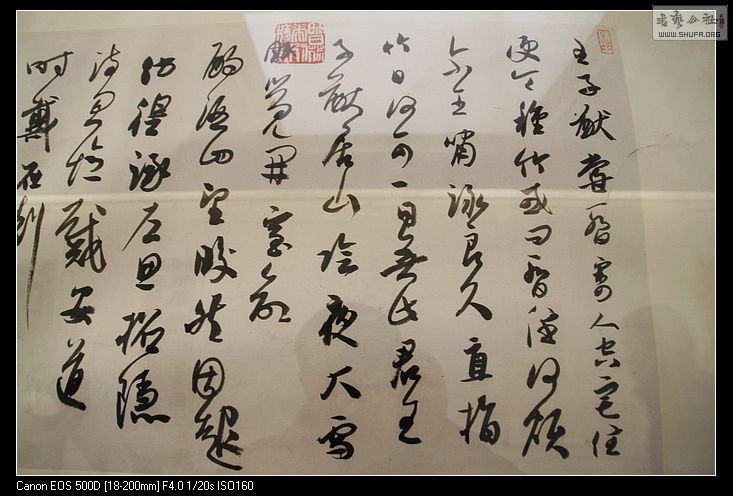 王子猷嘗暫寄人空宅住
便令種竹或问暫住何烦
尔王嘯詠良久直指
竹曰何可一日無此君王
子猷居山陰夜大雪
眠覺開室命
酌酒四望皎然因起
彷徨詠左思招隱
诗忽憶戴安道
时戴在剡
書藝公社
WWW.SHUFA.ORG
Canon EOS 500D [18-200mm] F4.0 1/20s ISO160